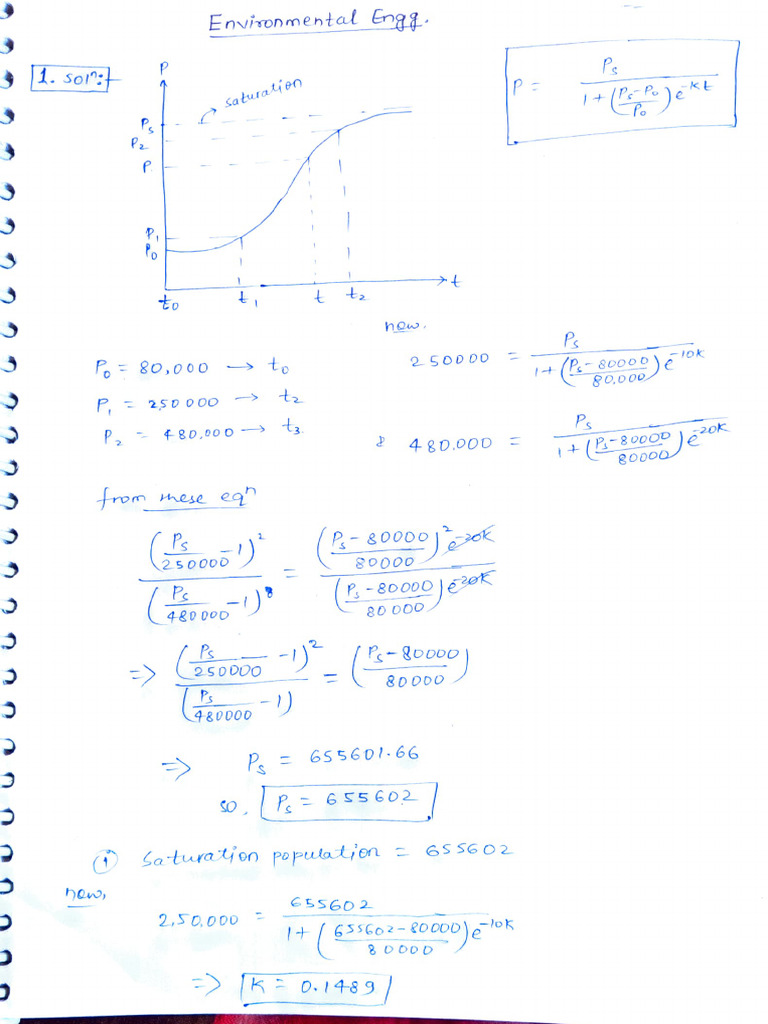 Environmental Engg.
1. solⁿ:-
P = Ps / (1 + ((Ps - P0) / P0) e^-kt)
P
saturation
Ps
P2
P
P1
P0
t0 t1 t t2 → t
P0 = 80,000 → t0
P1 = 250000 → t2
P2 = 480,000 → t3
now.
250000 = Ps / (1 + ((Ps - 80000) / 80,000) e^-10K)
& 480,000 = Ps / (1 + ((Ps - 80000) / 80000) e^-20K)
from these eqⁿ
(Ps / 250000 - 1)² / (Ps / 480000 - 1) = ((Ps - 80000) / 80000)² e^-20K / ((Ps - 80000) / 80000) e^-20K
=> (Ps / 250000 - 1)² / (Ps / 480000 - 1) = ((Ps - 80000) / 80000)
=> Ps = 655601.66
so, Ps = 655602
(i) Saturation population = 655602
now,
2,50,000 = 655602 / (1 + ((655602 - 80000) / 80000) e^-10K)
=> K = 0.1489